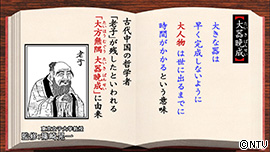 【大器晩成】
大きな器は
早く完成しないように
大人物は世に出るまでに
時間がかかるという意味
古代中国の哲学者
「老子」が残したといわれる
「大方無隅 大器晩成」に由来
老子
©NTV